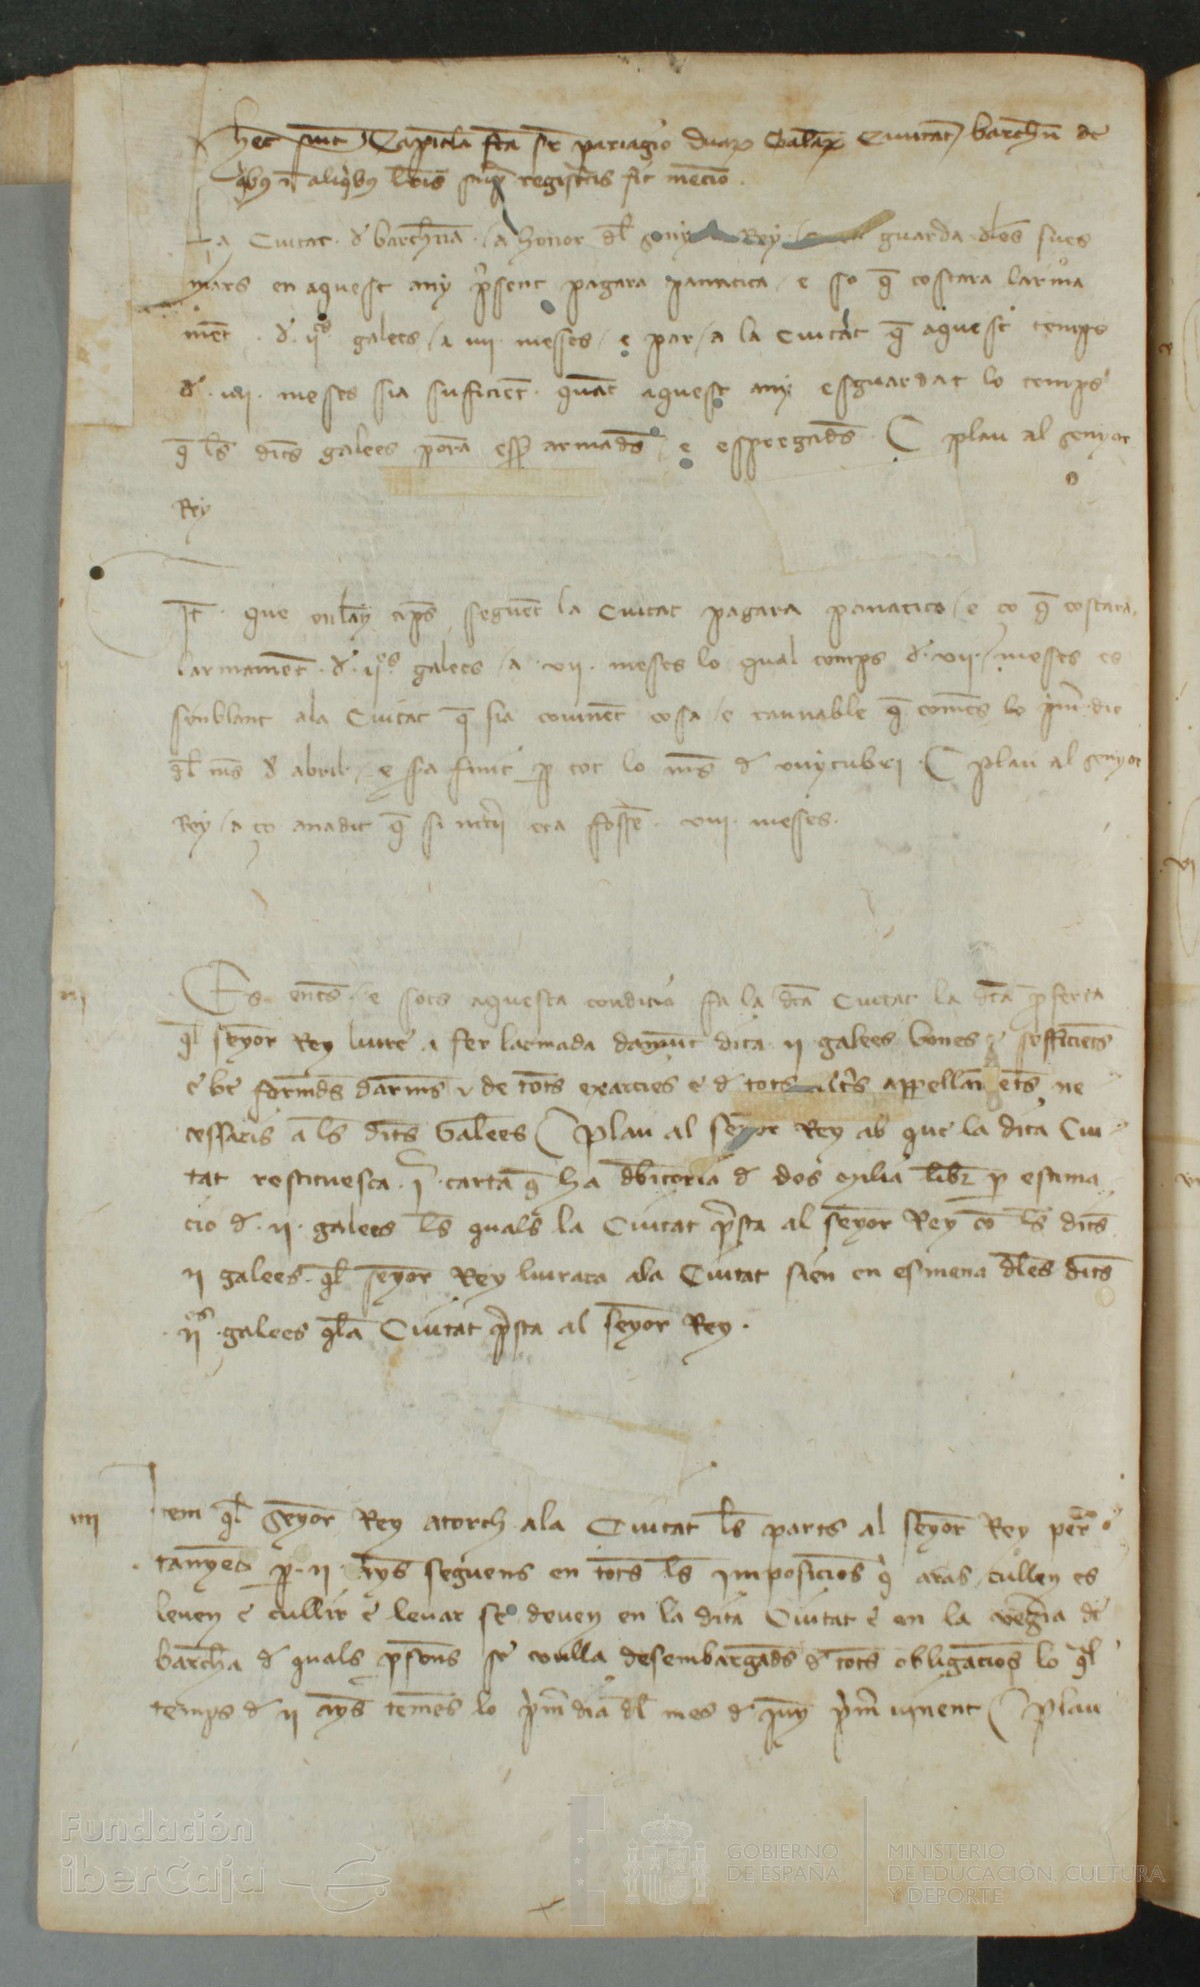 hec sunt Capitula fca sr pariagio duar Galear Civitat barchn de
qbus i aliqbus lris sup registris fit mencio.
La Ciutat d barchna a honor dl seny Rey guarda dles sues
mars en aquest any psent pagara panatica e so q costara larma
ment d ij galees a iiii meses e par a la Ciutat q aquest temps
d iiii meses sia suficient quat aquest any esguardat lo temps
q ls dits galees pora esser armades e espregades C plau al senyor
Rey
It que enlany aps seguent la Ciutat pagara panatica e ço q costara
larmament d ij galees a vii meses lo qual temps d vii meses es
semblant ala Ciutat q sia covinent cosa e raunable q comes lo pm die
dl mes d abril e sia finit p tot lo mes d vuytubri C plau al senyor
Rey a ço anadit q si ncri era fossen viii meses
iii
Es entes e sots aquesta condicio fa la dta Ciutat la dta pferta
ql senyor Rey liure a fer larmada damunt dita ii galees bones e sufficients
e be fornides darmes e de totes exarcies e d tots altres appellaments ne
cessaris a ls dits Galees C Plau al senyor Rey ab que la dita Ciu
tat restituesca i carta q ha dbitoria d dos milia libr p estima
cio d ii galees ls quals la Ciutat psta al senyor Rey co ls dits
ii galees ql senyor Rey liurara ala Ciutat sien en esmena dles dits
ii galees qla Ciutat psta al senyor Rey.
iiii
Item ql senyor Rey atorch ala Ciutat ls parts al senyor Rey per
tanyets p ii anys seguens en totes ls imposicions q aras cullen es
leven e cullir e levar se deven en la dita Ciutat e en la vegria de
barchna d quals psones se vulla desembargades d totes obligacions lo ql
temps d ii anys temes lo pm dia dl mes d juny pm vinent C Plau
Fundación
iberCaja
GOBIERNO
DE ESPAÑA
MINISTERIO
DE EDUCACIÓN, CULTURA
Y DEPORTE